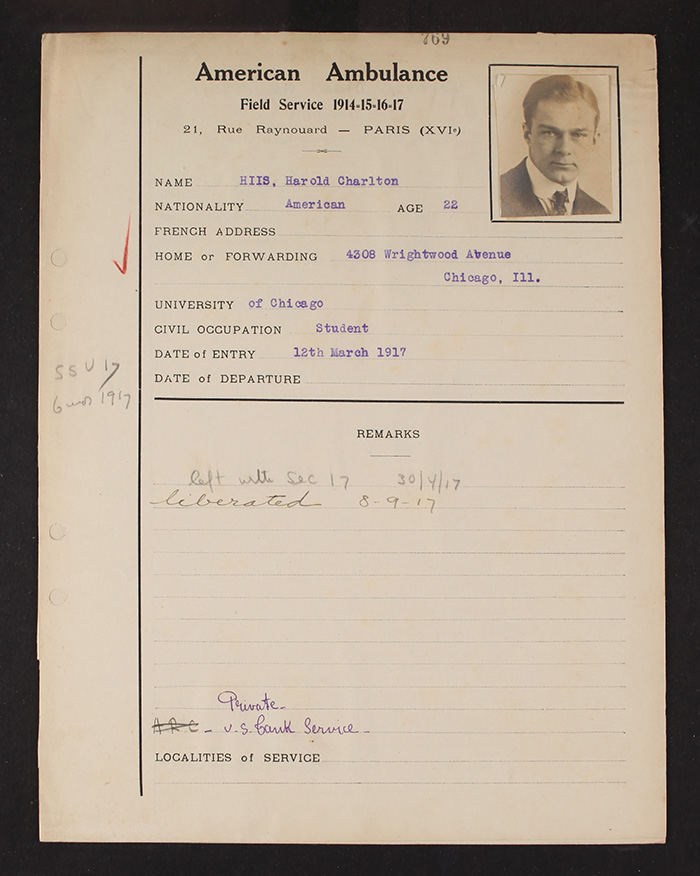 769
American Ambulance
Field Service 1914-15-16-17
21, Rue Raynouard — PARIS (XVIe)
17
NAME HIIS, Harold Charlton
NATIONALITY American AGE 22
FRENCH ADDRESS
HOME or FORWARDING 4308 Wrightwood Avenue
Chicago, Ill.
UNIVERSITY of Chicago
CIVIL OCCUPATION Student
DATE of ENTRY 12th March 1917
DATE of DEPARTURE
SSU 17
6 mos 1917
REMARKS
left with Sec 17 30/4/17
liberated 8-9-17
Private -
A R C - U.S. Tank Service -
LOCALITIES of SERVICE